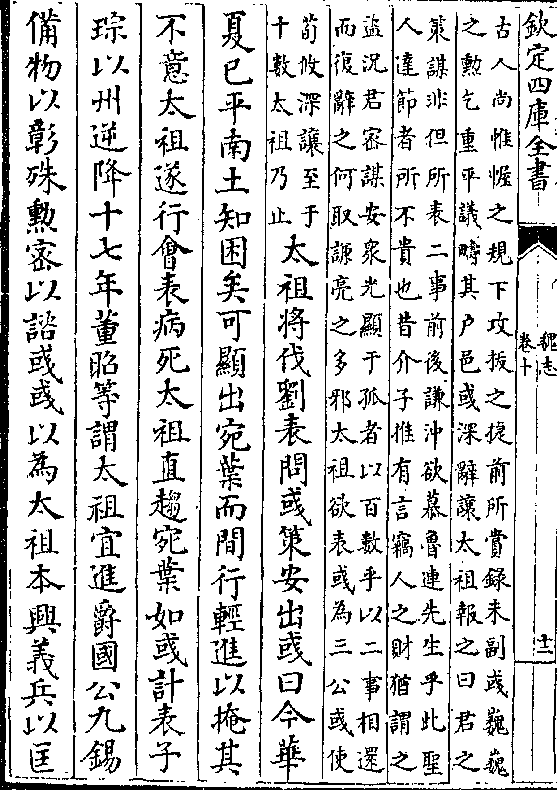 欽定四庫全書
魏志
卷十
十二
古人尚惟幄之規下攻拔之捷前所賞錄未副彧巍巍
之勳乞重平議疇其戶邑彧深辭讓太祖報之曰君之
策謀非但所表二事前後謙沖欲慕魯連先生乎此聖
人達節者所不貴也昔介子推有言竊人之財猶謂之
盜況君密謀安衆光顯于孤者以百數乎以二事相還
而復辭之何取謙亮之多邪太祖欲表彧為三公彧使
荀攸深讓至于
十數太祖乃止
太祖將伐劉表問彧策安出彧曰今華
夏已平南土知困矣可顯出宛葉而間行輕進以掩其
不意太祖遂行會表病死太祖直趨宛葉如彧計表子
琮以州逆降十七年董昭等謂太祖宜進爵國公九錫
備物以彰殊勳密以諮彧彧以為太祖本興義兵以匡